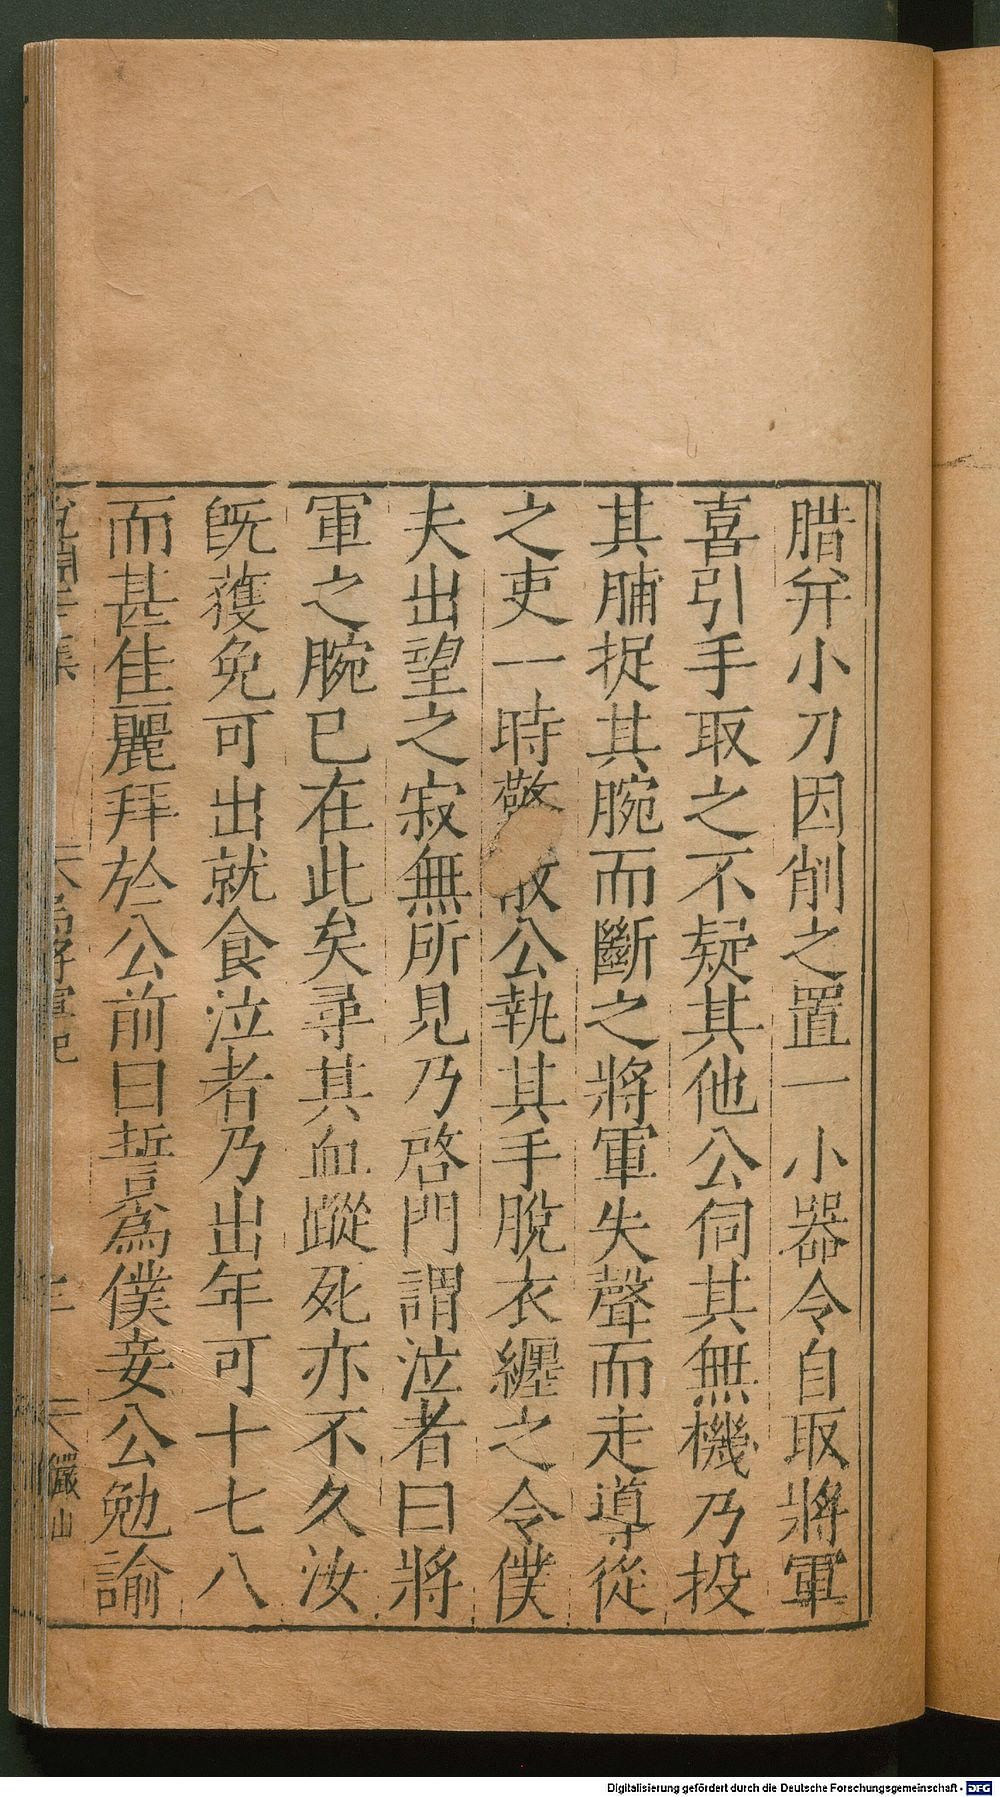 腊并小刀因削之置一小器令自取將軍
喜引手取之不疑其他公伺其無機乃投
其脯捉其腕而斷之將軍失聲而走導從
之吏一時驚散公執其手脫衣纏之令僕
夫出望之寂無所見乃啓門謂泣者曰將
軍之腕已在此矣尋其血蹤死亦不久汝
旣獲免可出就食泣者乃出年可十七八
而甚佳麗拜於公前曰誓爲僕妾公勉諭
儼山
Digitalisierung gefördert durch die Deutsche Forschungsgemeinschaft - DFG